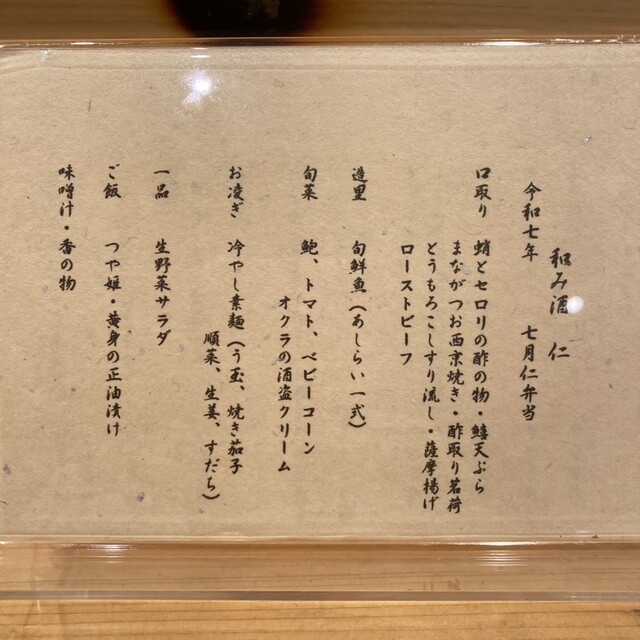 和み酒 仁
令和七年 七月仁弁当
口取り 蛸とセロリの酢の物・鱚天ぷら
まながつお西京焼き・酢取り茗荷
とうもろこしすり流し・薩摩揚げ
ローストビーフ
造里 旬鮮魚(あしらい一式)
旬菜 鮑、トマト、ベビーコーン
オクラの酒盗クリーム
お凌ぎ 冷やし素麺(う玉、焼き茄子
順菜、生姜、すだち)
一品 生野菜サラダ
ご飯 つや姫・黄身の正油漬け
味噌汁・香の物